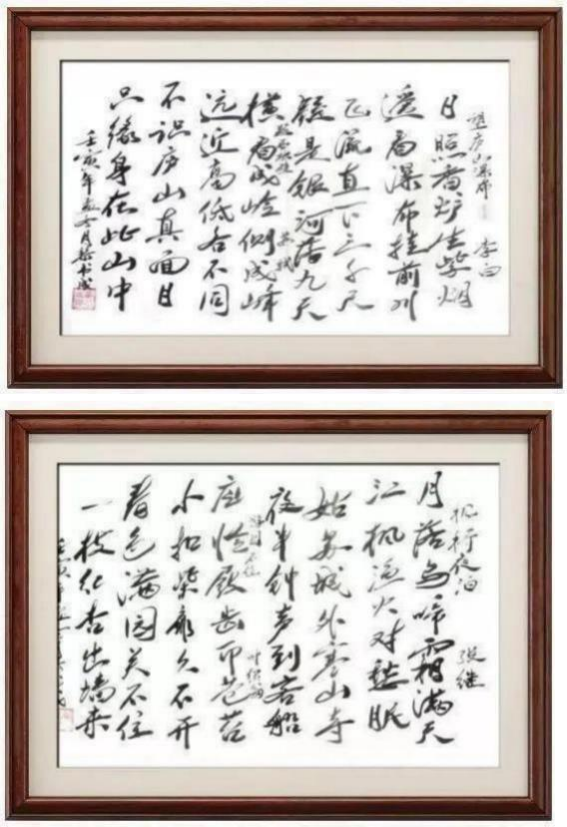 望庐山瀑布 李白
日照香炉生紫烟
遥看瀑布挂前川
飞流直下三千尺
疑是银河落九天
苏轼
横看成岭侧成峰
远近高低各不同
不识庐山真面目
只缘身在此山中
壬寅年
枫桥夜泊 张继
月落乌啼霜满天
江枫渔火对愁眠
姑苏城外寒山寺
夜半钟声到客船
叶绍翁
应怜屐齿印苍苔
小扣柴扉久不开
春色满园关不住
一枝红杏出墙来